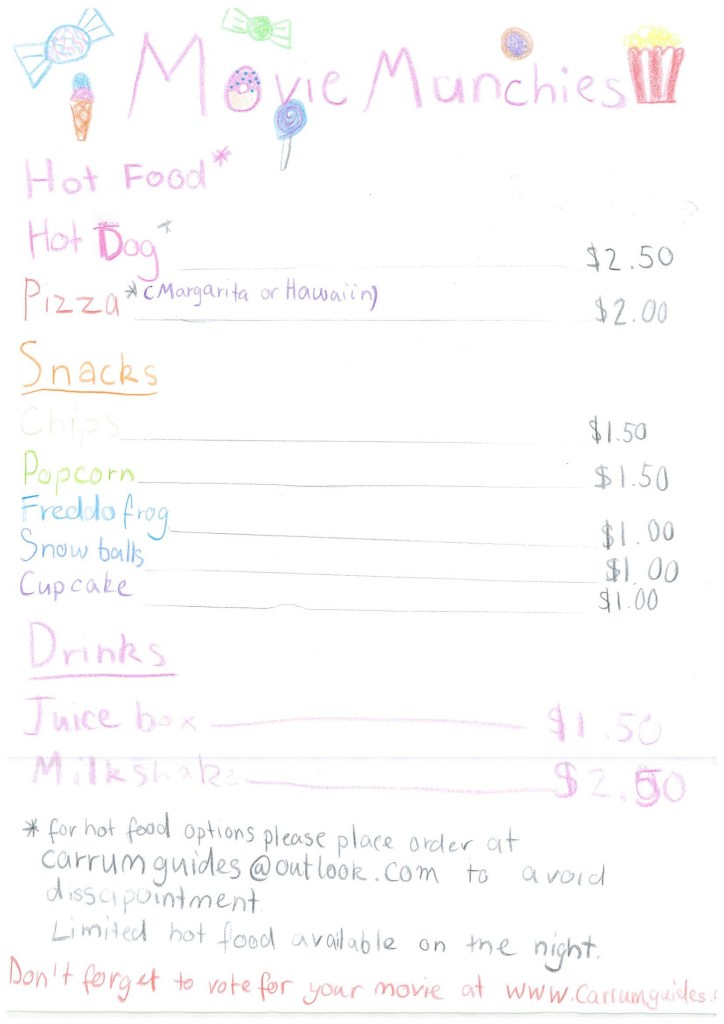 Movie Munchies
Hot Food*
Hot Dog* $2.50
Pizza *(Margarita or Hawaiin) $2.00
Snacks
Chips $1.50
Popcorn $1.50
Freddo frog $1.00
Snow balls $1.00
Cupcake $1.00
Drinks
Juice box $1.50
Milkshake $2.50
* for hot food options please place order at
carrumguides@outlook.com to avoid
dissapointment.
Limited hot food available on the night.
Don't forget to vote for your movie at www.carrumguides.c